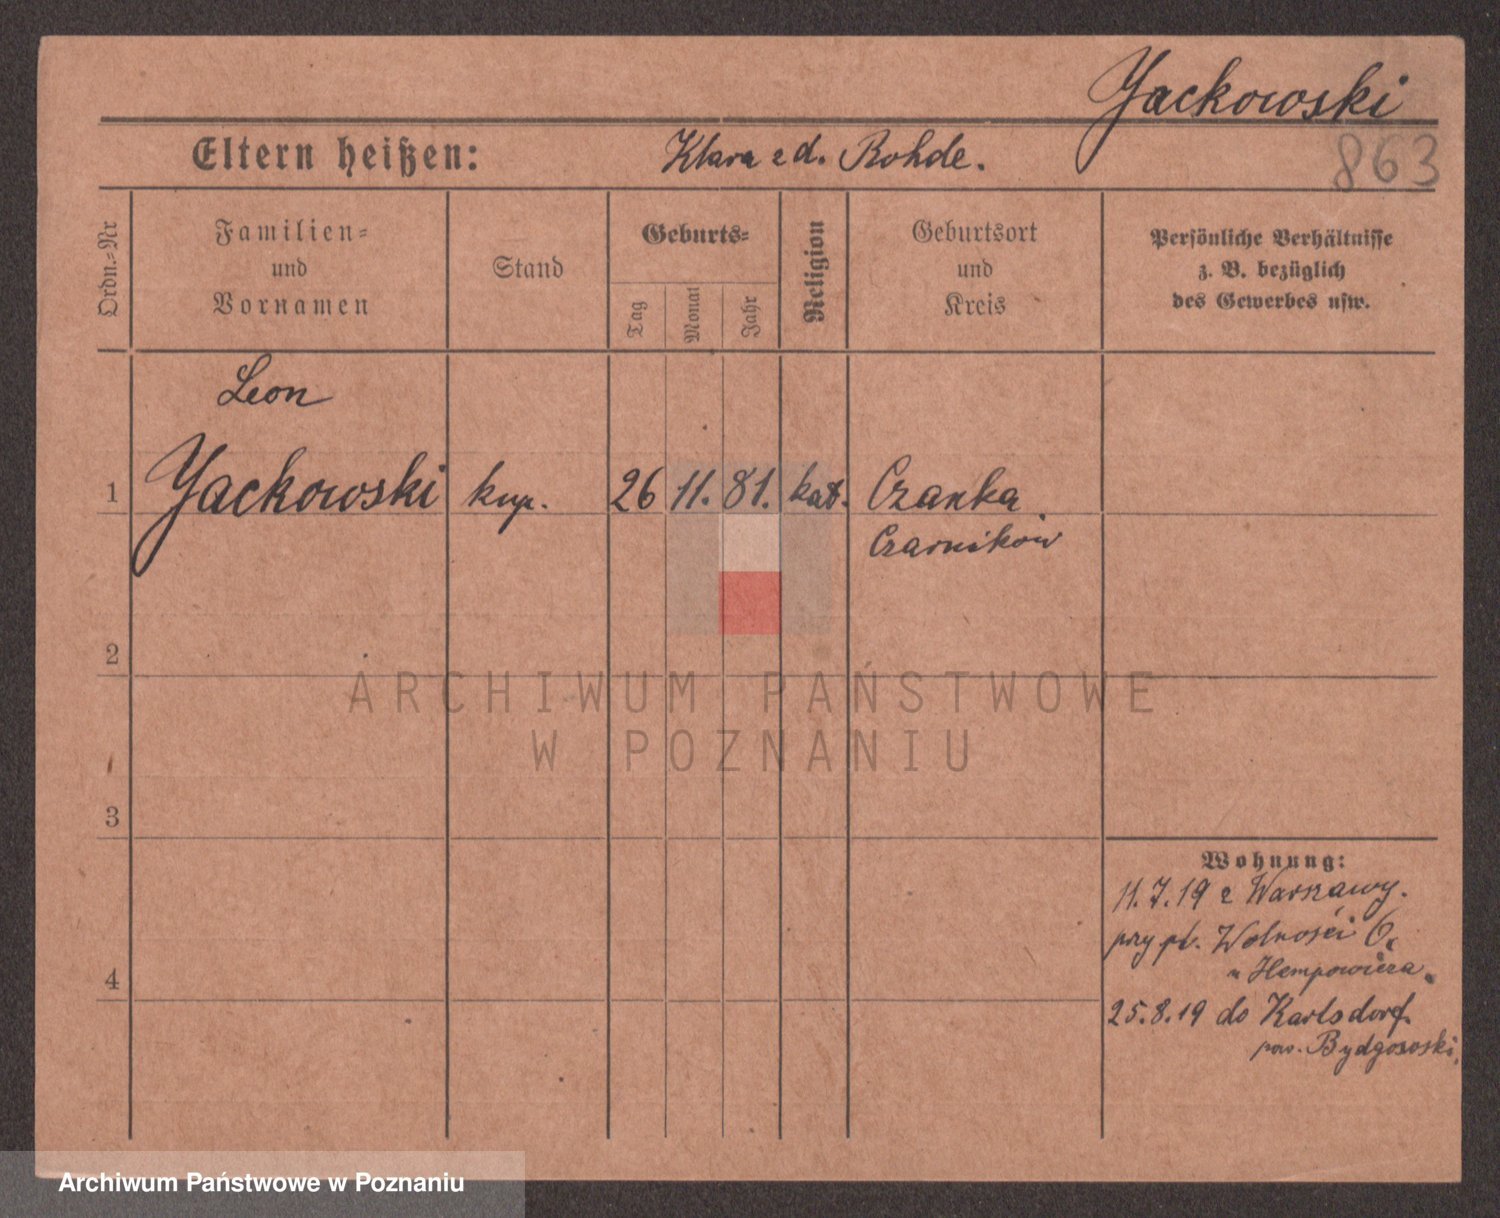 Yackowski
863
Eltern heißen: Klara z d. Rohde.
Ordn.-Nr
Familien-
und
Vornamen
Stand
Geburts-
Tag
Monat
Jahr
Religion
Geburtsort
und
Kreis
Persönliche Verhältnisse
z. B. bezüglich
des Gewerbes usw.
Leon
1 Yackowski kup. 26 11. 81. kat. Czanka
Czarników
2
3
4
Wohnung:
11.7.19 z Warszawy.
przy pl. Wolności 6.
u Hempowicza.
25.8.19 do Karlsdorf.
pow. Bydgososki.
ARCHIWUM PAŃSTWOWE
W POZNANIU
Archiwum Państwowe w Poznaniu